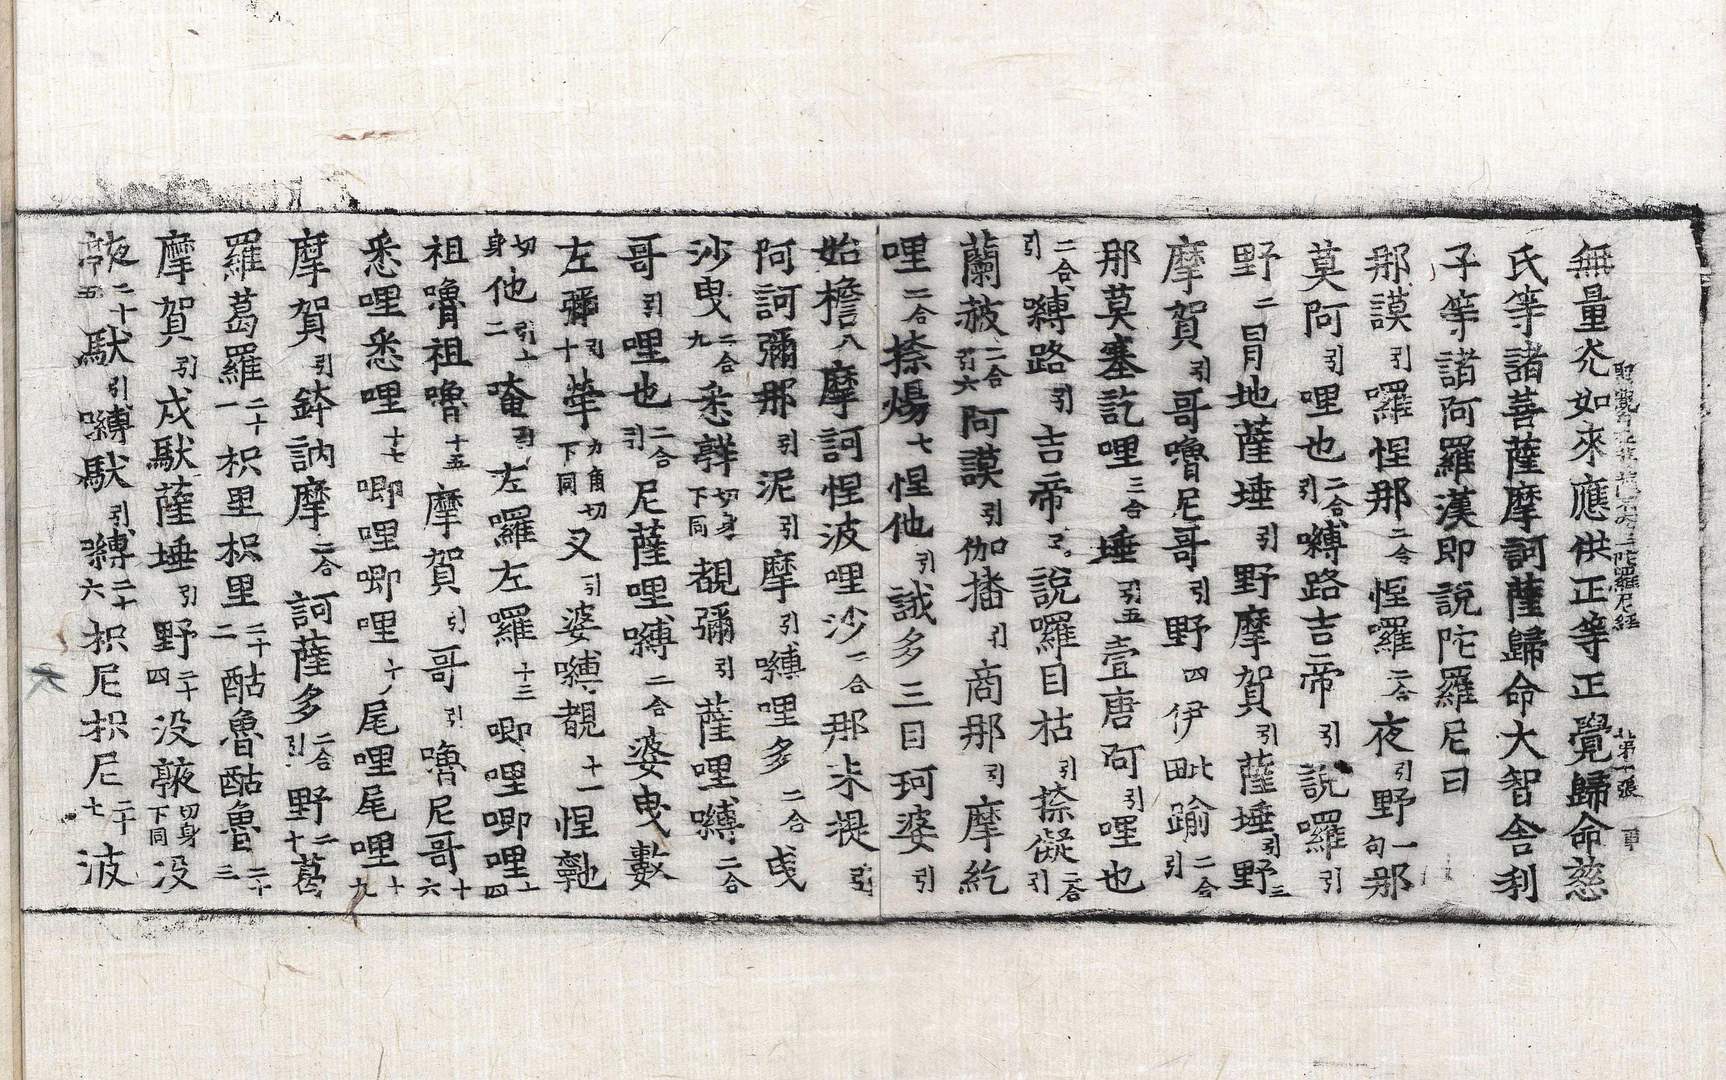 無量光如來應供正等正覺歸命慈
氏等諸菩薩摩訶薩歸命大智舍利
子等諸阿羅漢即說陀羅尼曰
那謨引囉怛那二合怛囉二合夜引野一句那
莫阿引哩也二合引嚩路吉帝引說囉引
野二冒地薩埵引野摩賀引薩埵引野三
摩賀引哥嚕尼哥引野四伊毗踰二合引
那莫塞訖哩三合埵引五壹唐阿引哩也
二合引嚩路引吉帝引說囉目枯引捺儗二合引
蘭菝二合引六阿謨引伽播引商那引摩紇
哩二合捺煬七怛他引誐多三目珂婆引
始檐八摩訶怛波哩沙二合那米湜引
阿訶彌那引泥引摩引嚩哩多二合曵
沙曳二合九悉切身下同覩彌引薩哩嚩二合
哥引哩也二合引尼薩哩嚩二合婆曵數
左彌引十力角切下同叉引婆嚩覩十一怛
切身他引十二唵引左囉左囉十三唧哩唧哩十四
祖嚕祖嚕十五摩賀引哥引嚕尼哥十六
悉哩悉哩十七唧哩唧哩十八尾哩尾哩十九
摩賀引鉢訥摩二合訶薩多二合引野二十葛
羅葛羅二十一枳里枳里二十二酤魯酤魯二十三
摩賀引戍馱薩埵引野二十四没切身下同没
二十五馱引嚩馱引嚩二十六枳尼枳尼二十七波